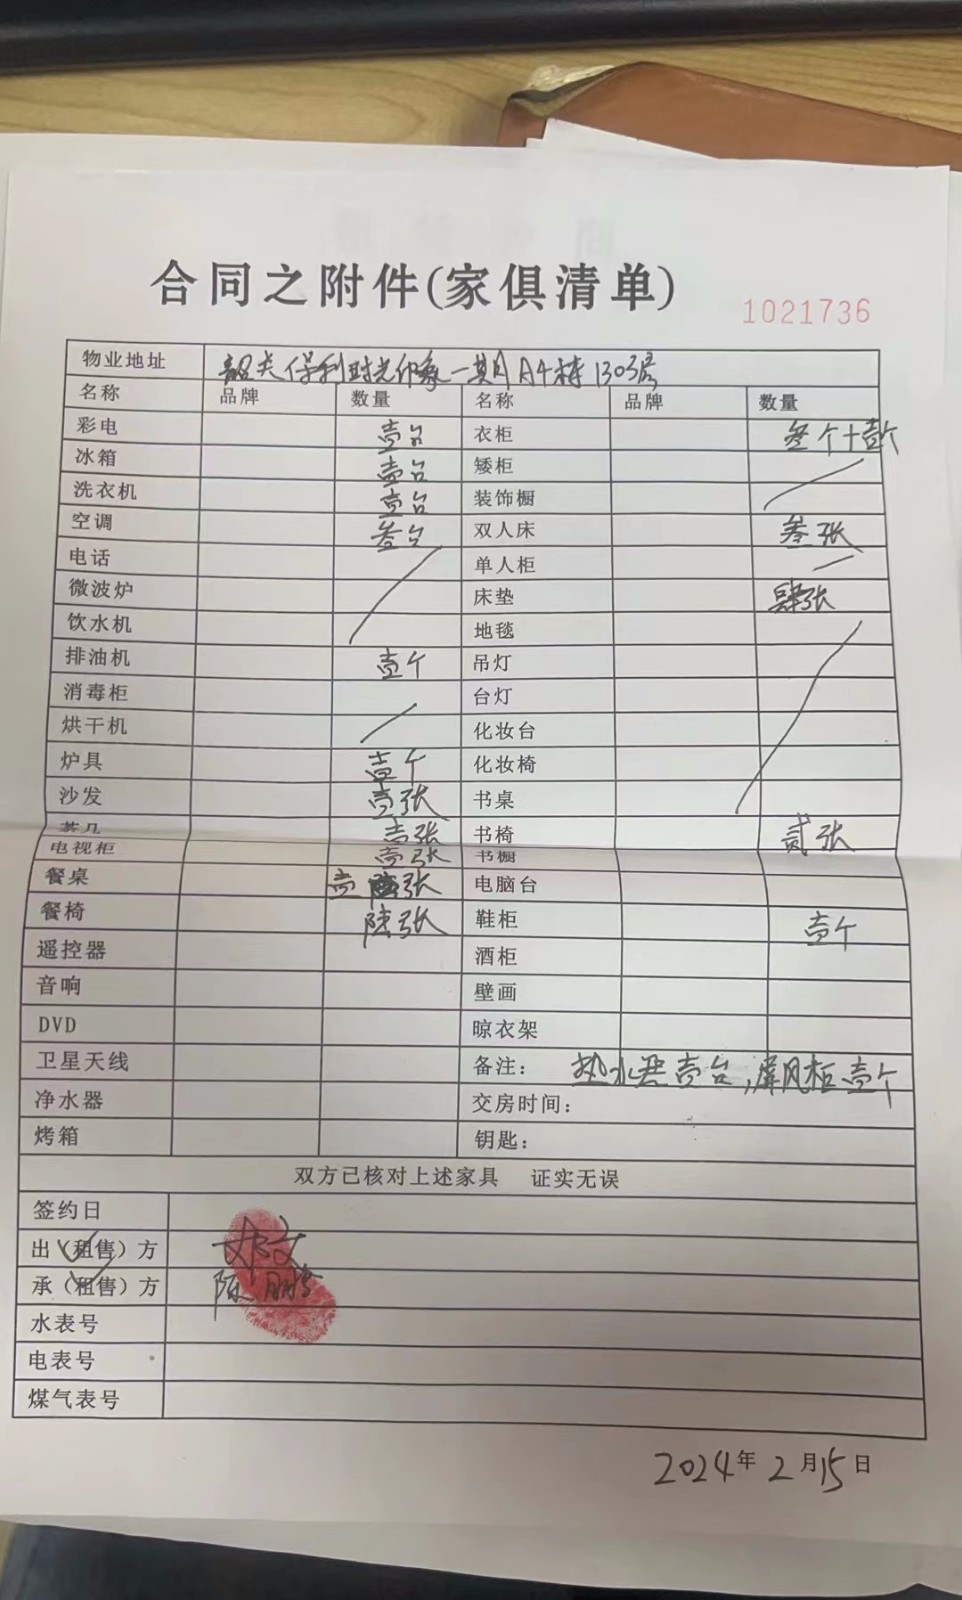 合同之附件(家俱清单)
1021736
物业地址 韶关保利时光印象一期A4栋1303房
名称 品牌 数量 名称 品牌 数量
彩电 壹台 衣柜 叁个+壹个
冰箱 壹台 矮柜
洗衣机 壹台 装饰橱
空调 叁台 双人床 叁张
电话 单人柜
微波炉 床垫 肆张
饮水机 地毯
排油机 壹个 吊灯
消毒柜 台灯
烘干机 化妆台
炉具 壹个 化妆椅
沙发 壹张 书桌
茶几 壹张 书椅 贰张
电视柜 壹张 书橱
餐桌 壹张 电脑台
餐椅 陆张 鞋柜 壹个
遥控器 酒柜
音响 壁画
DVD 晾衣架
卫星天线 备注: 热水器壹台,屏风柜壹个
净水器 交房时间:
烤箱 钥匙:
双方已核对上述家具 证实无误
签约日
出(租售)方
承(租售)方 陈鹏
水表号
电表号
煤气表号
2024年2月15日